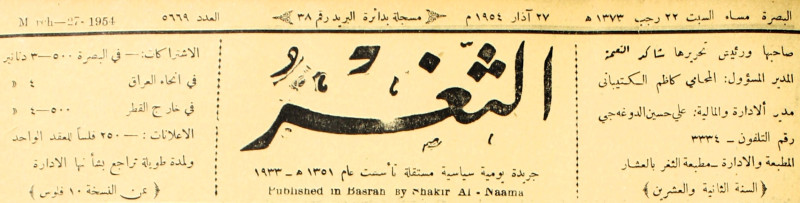 البصرة مساء السبت ٢٢ رجب ١٣٧٣ هـ
٢٧ آذار ١٩٥٤ م
مسجلة بدائرة البريد رقم ٣٨
العدد ٥٦٦٩
March-27-1954
صاحبها ورئيس تحريرها شاكر النعمة
المدير المسؤول: المحامي كاظم الكتيباني
مدير ألادارة والمالية: علي حسين الدوغه جي
رقم التلفون — ٣٣٣٤
المطبعة والادارة — مطبعة الثغر بالعشار
﴿ السنة الثانية والعشرين ﴾
الثغر
جريدة يومية سياسية مستقلة تأسست عام ١٣٥١ هـ - ١٩٣٣
Published in Basrah By Shakir Al - Naama
الاشتراكات: — في البصرة ٥٠٠—٣ دنانير
في انحاء العراق ٤ »
في خارج القطر ٥٠٠—٤ »
الاعلانات: — ٢٥٠ فلساً للعقد الواحد
ولمدة طويلة تراجع بشأنها الادارة
﴿ ثمن النسخة ١٠ فلوس ﴾